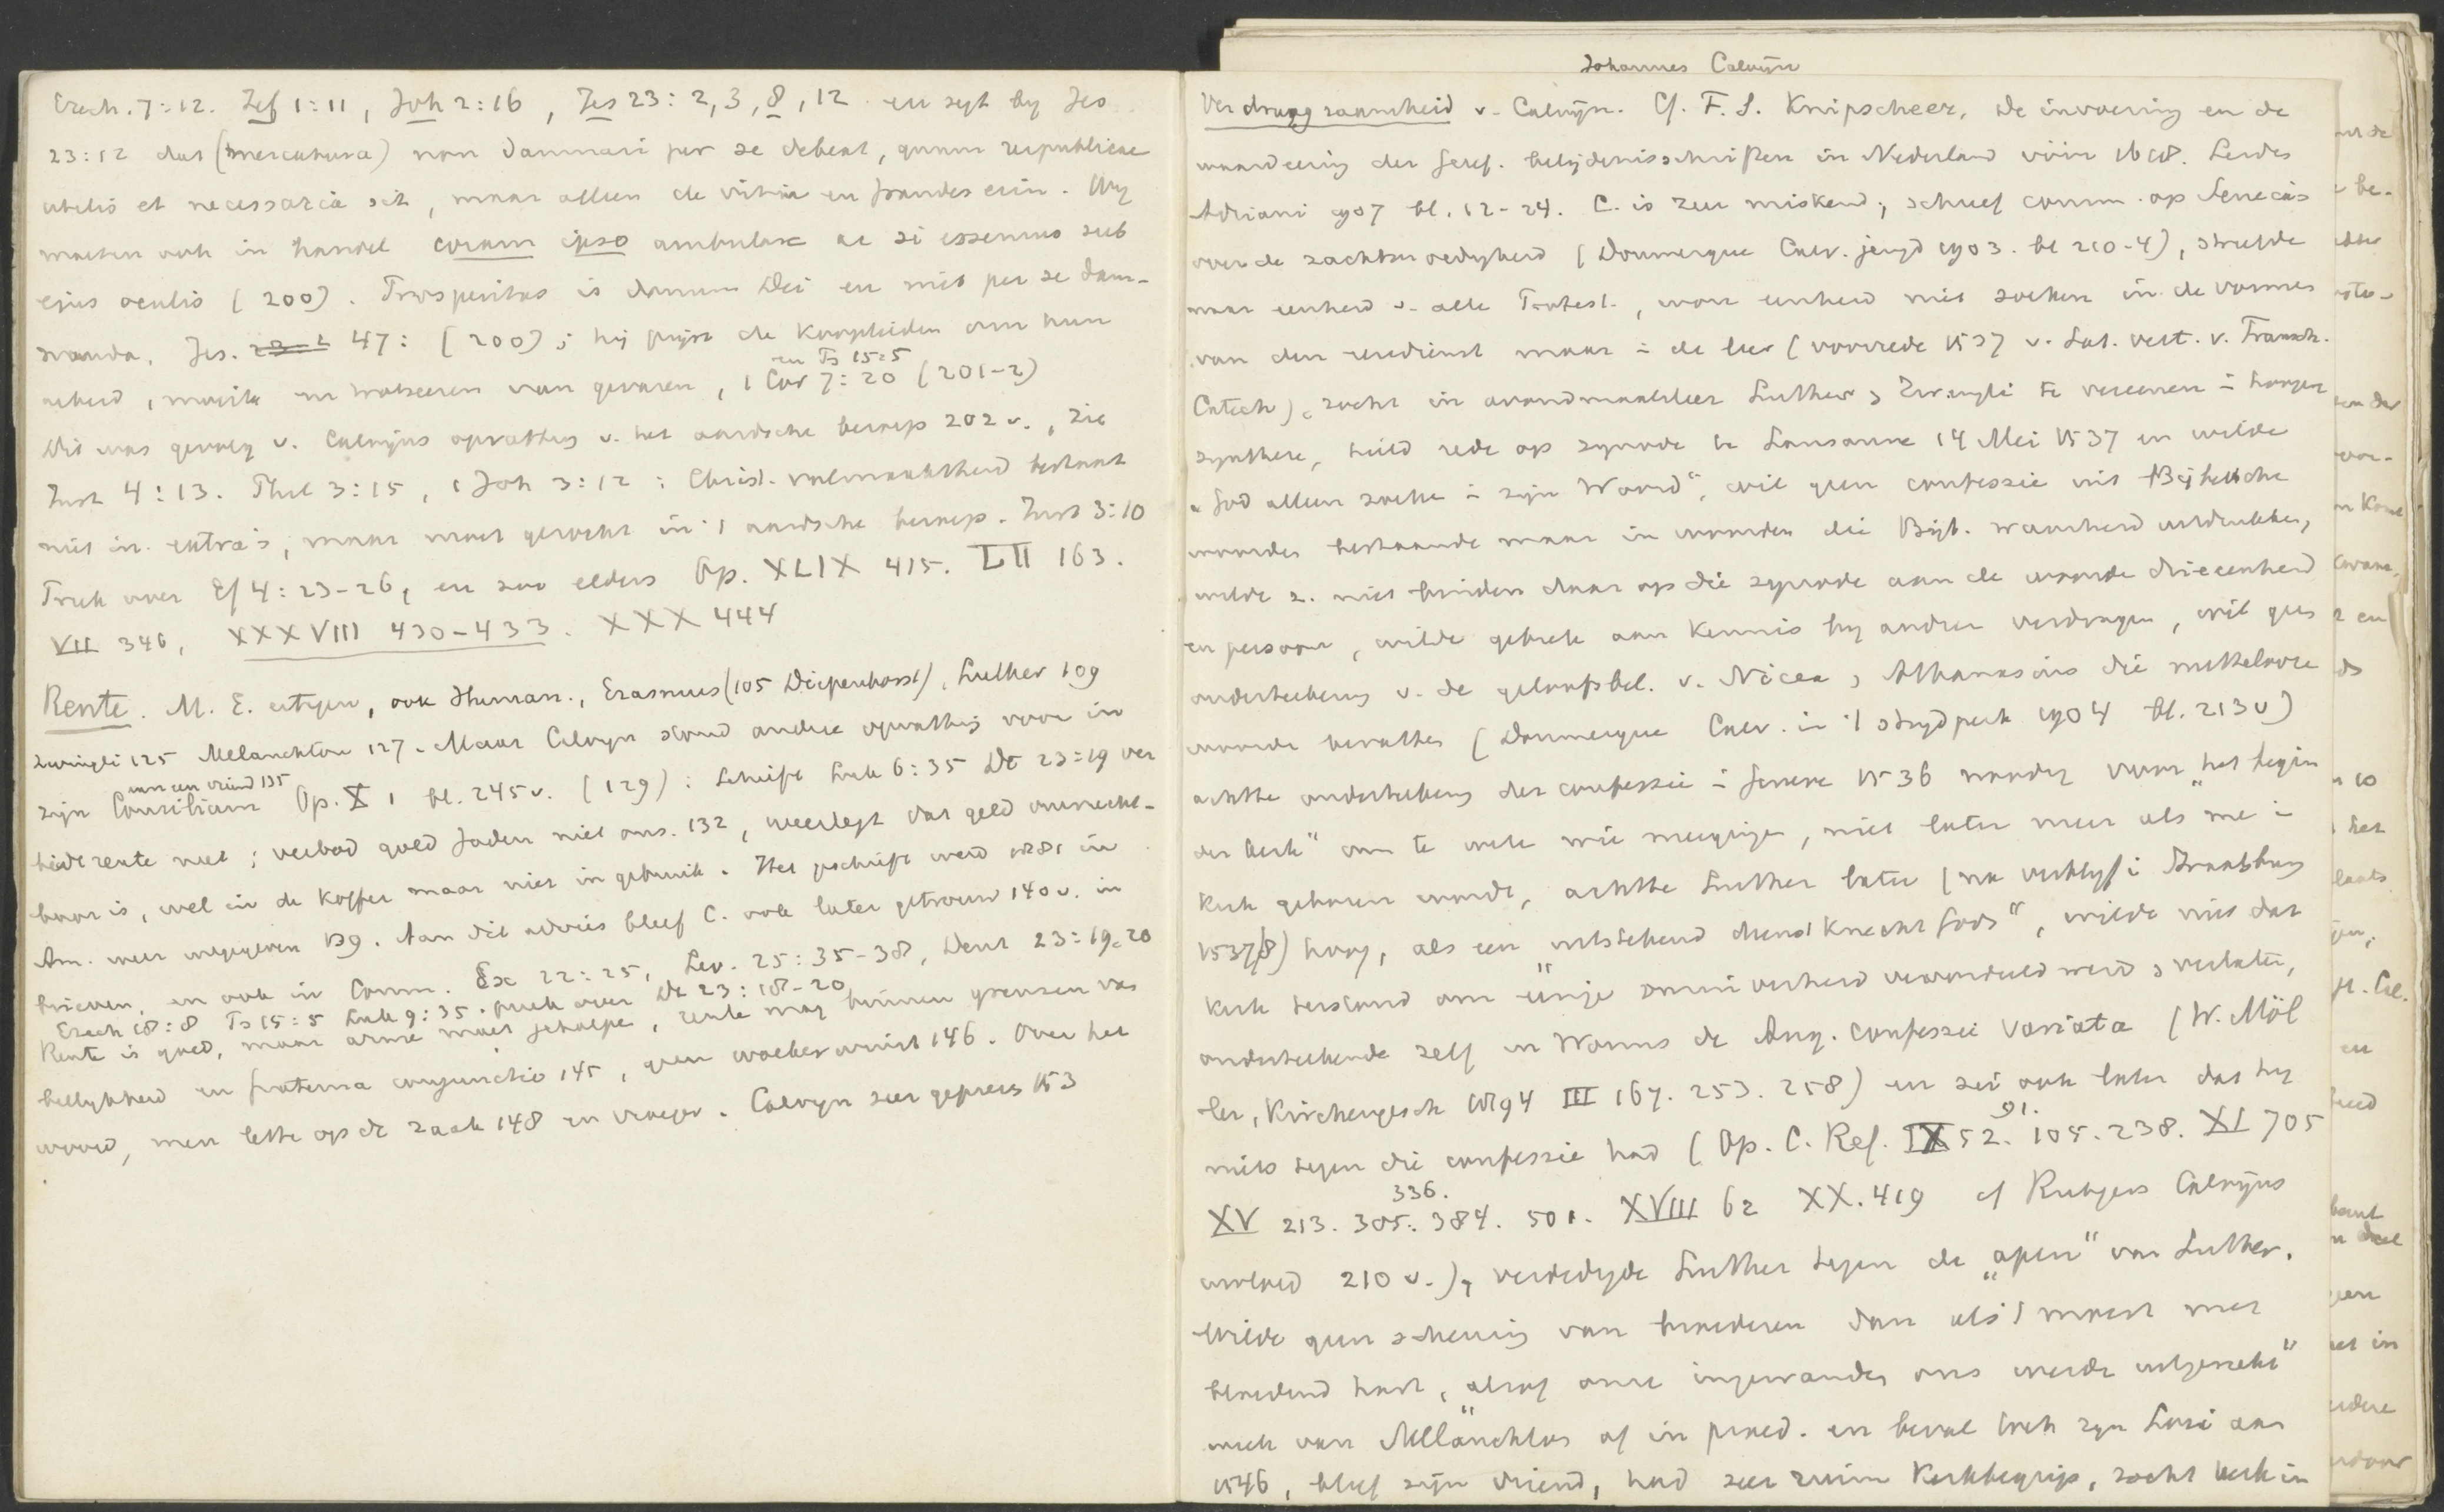 Ezech. 7:12. Zef 1:11, Joh 2:16, Jes 23: 2, 3, 8, 12 en zegt by Jes
23:12 dat (mercatura) non damnari per se debeat, quum reipublicae
utilis et necessaria sit, maar alleen de vitia en fraudes erin. Wy
moeten ook in handel coram ipso ambulare ac si essemus sub
ejus oculis (200). Prosperitas is donum Dei en niet per se dam-
nanda. Jes. 47: (200); hij prijst de kooplieden om hun
arbeid, moeite en trotseeren van gevaren, 1 Cor 7:20 (201-2)
en Ps 15:5
Dit was gevolg v. Calvijns opvatting v. het aardsche beroep 202 v., zie
Inst 4:13. Phil 3:15, 1 Joh 3:12: Christ. volmaaktheid bestaat
niet in extra's, maar moet gezocht in 't aardsche beroep. Inst 3:10
Preek over Ef 4:23-26, en zoo elders Op. XLIX 415. LII 163.
VII 346, XXXVIII 430-433. XXX 444
Rente. M. E. ertegen, ook Human., Erasmus (105 Diepenhorst), Luther 109
Zwingli 125 Melanchton 127. Maar Calvyn stond andere opvatting voor in
zijn Consilium Op. X 1 bl. 245 v. (129): Schrift Luk 6:35 Dt 23:19 ver
aan een vriend 135
biedt rente niet; verbod gold Joden niet ons. 132, weerlegt dat geld onvrucht-
baar is, wel in de koffer maar niet in gebruik. Het geschrift werd in
Am. weer uitgegeven 139. Aan dit advies bleef C. ook later getrouw 140 v. in
brieven, en ook in Comm. Ex 22:25, Lev. 25:35-38, Deut 23:19-20
Ezech 18:8 Ps 15:5 Luk 9:35. preek over Dt 23:18-20
Rente is goed, maar arme moet geholpe, rente mag binnen grenzen van
billykheid en fraterna conjunctio 145, geen woekerwinst 146. Over het
woord, men lette op de zaak 148 en vroeger. Calvyn zeer geprezen 153
Johannes Calvijn
Verdraagzaamheid v. Calvijn. Cf. F. S. Knipscheer, De invoering en de
waardeering der Geref. belijdenisschriften in Nederland vóór 1618. Leiden
Adriani 1907 bl. 12-24. C. is zeer miskend; schreef comm. op Seneca's
over de zachtmoedigheid (Doumergue Calv. jeugd 1903. bl 210-4), streefde
naar eenheid v. alle Protest., wou eenheid niet zoeken in de vormen
van den eeredienst maar in de leer (voorrede 1537 v. Lat. vert. v. Fransch.
Catech), zocht in avondmaalsleer Luther & Zwingli te vereenen in hooger
synthese, hield rede op synode te Lausanne 14 Mei 1537 en wilde
"God alleen zoeke in zijn Woord", wil geen confessie uit Bijbelsche
woorden bestaande maar in woorden die Bijb. waarheid uitdrukken,
wilde z. niet binden daar op die synode aan de woorden drieeenheid
en persoon, wilde gebrek aan kennis by andren verdragen, wil geen
onderteekening v. de geloofsbel. v. Nicea & Athanasius die nuttelooze
woorden bevatten (Doumergue Calv. in 't strydperk 1904 bl. 213 v)
achtte onderteekening der confessie in Geneve 1536 noodig voor "het begin
der kerk" om te weten wie meegingen, niet later meer als me in
kerk geboren wordt, achtte Luther later (na verblyf in Straatsburg
1537/8) hoog, als een "uitstekend dienstknecht Gods", wilde niet dat
kerk terstond om eenige onzuiverheid veroordeeld werd & verlaten,
onderteekende zelf in Worms de Aug. confessie Variata (W. Möl
ler, Kirchengesch 1894 III 167. 253. 258) en zei ook later dat hy
niets tegen die confessie had (Op. C. Ref. IX 52. 91. 105. 238. XI 705
XV 213. 305. 336. 384. 501. XVIII 62 XX. 419 cf Rutgers Calvijns
invloed 210 v.), verdedigde Luther tegen de "apen" van Luther.
Wilde geen scheuring van broederen dan als 't moest met
bloedend hart, "alsof onze ingewanden ons werden uitgerukt"
week van Melanchton af in praed. en beval toch zyn Loci aan
1546, bleef zijn vriend, had zeer ruim kerkbegrip, zocht kerk in